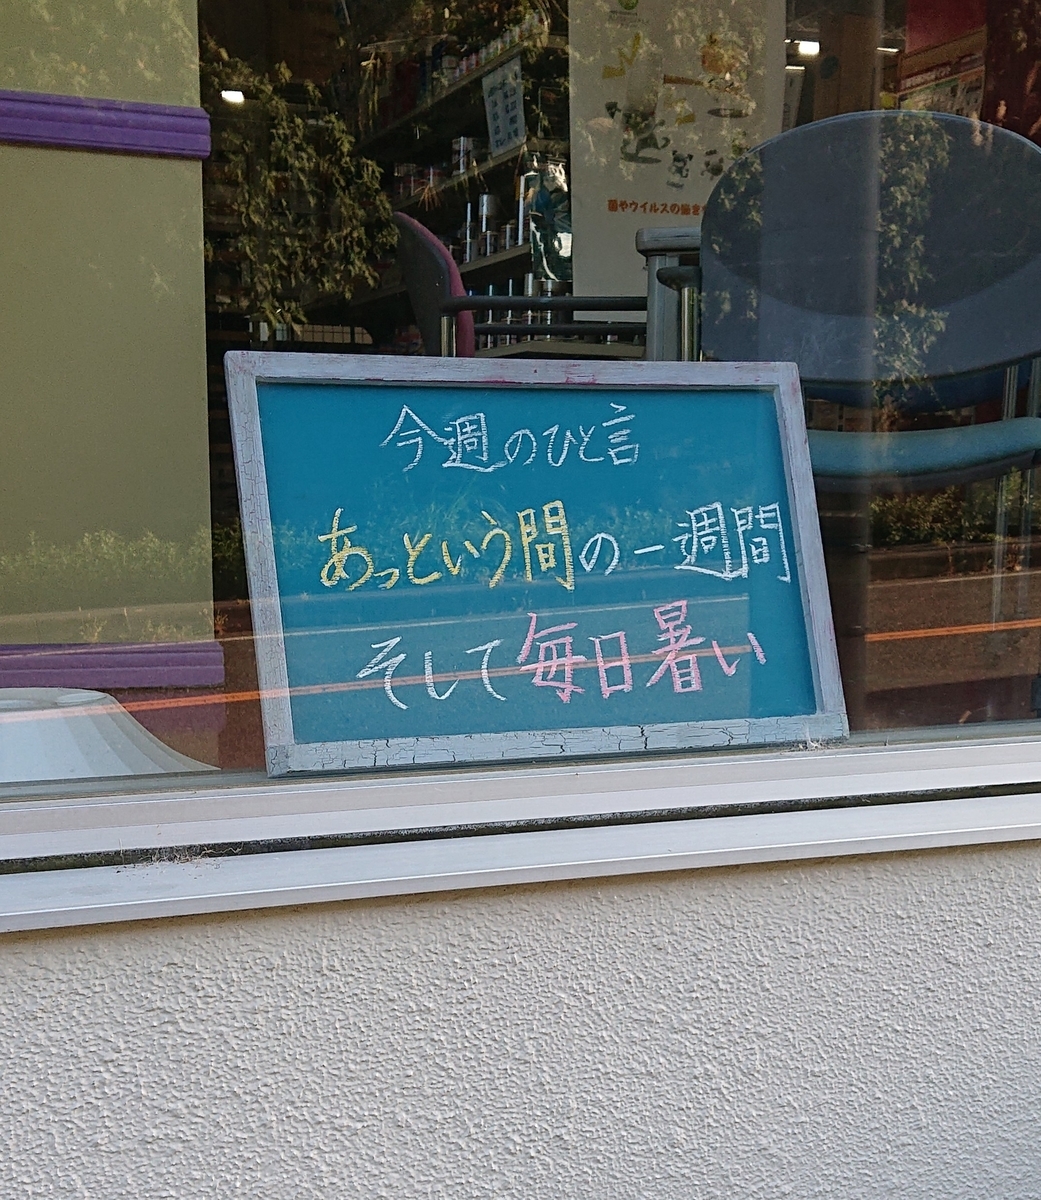 菌やウイルスの働き
今週のひと言
あっという間の一週間
そして毎日暑い